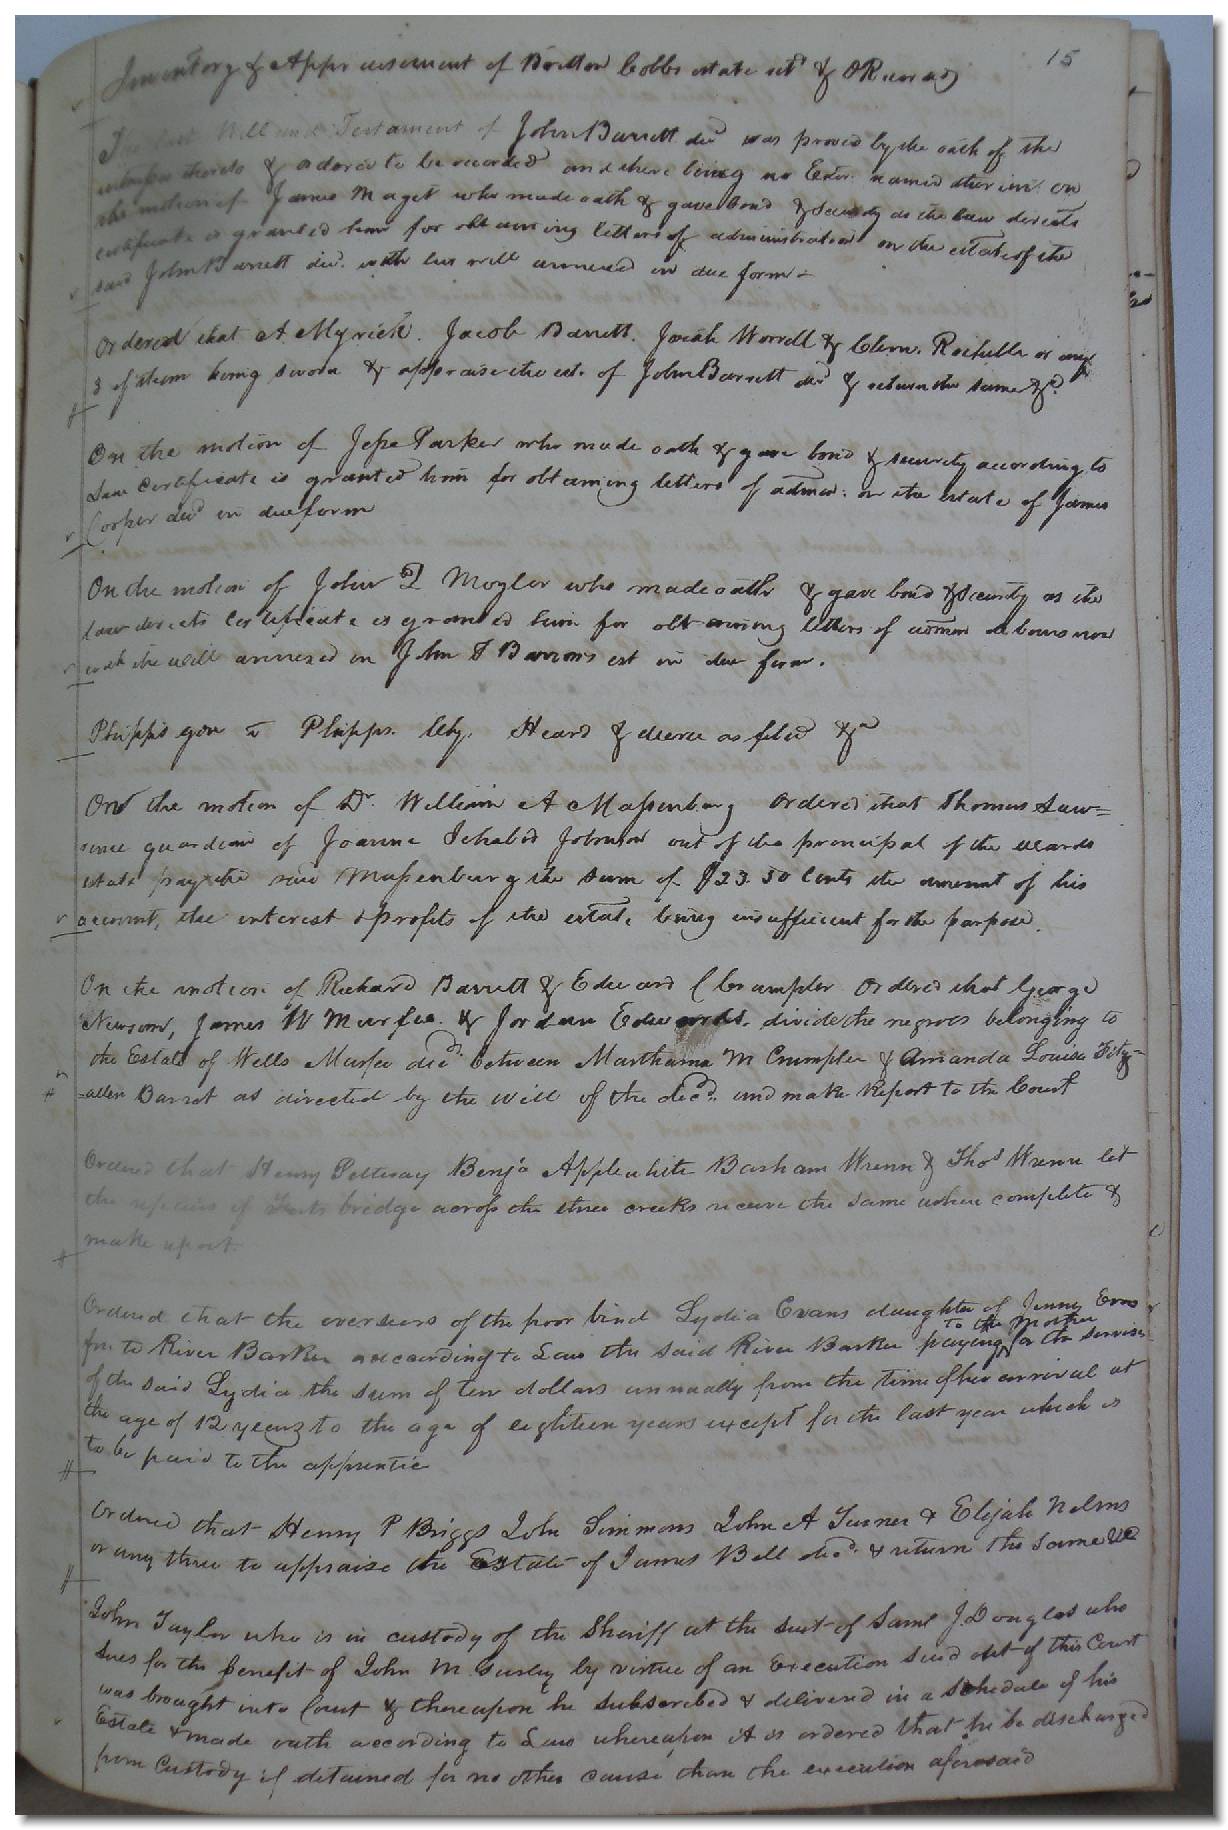 15
Inventory & Appraisement of Britton Cobbs estate retd & ORecord
The last Will and Testament of John Barrett decd was proved by the oath of the
witnesses thereto & ordered to be recorded and there being no Exor. named therein on
the motion of James Maget who made oath & gave bond & Security as the law directs
certificate is granted him for obtaining letters of administration on the estate of the
said John Barrett decd. with his will annexed in due form
Ordered that A Myrick. Jacob Barrett. Josiah Worrell & Clem. Rochelle or any
3 of them being sworn & appraise the est. of John Barrett decd & return the same &c.
On the motion of Jesse Parker who made oath & gave bond & security according to
Law certificate is granted him for obtaining letters of admon: on the estate of James
Cooper decd in due form
On the motion of John Moyler who made oath & gave bond & Security as the
law directs certificate is granted him for obtaining letters of admon de bonis non
with the will annexed on John Barrons est in due form.
Phipps gdn v Phipps. Chy. Heard & decree as filed &c
On the motion of Dr. William A Massenburg Ordered that Thomas Law=
rence guardian of Joanna Johnson out of the principal of the wards
estate pay the said Massenburg the sum of $23.50 Cents the amount of his
account, the interest & profits of the estate being insufficient for the purpose.
On the motion of Richard Barrett & Edward C Crumpler Ordered that George
Newsom, James W Murfee. & Jordan Edwards. divide the negroes belonging to
the Estate of Wells Murfee decd. between Marthanna M Crumpler & Amanda Louisa Fitz=
=allen Barret as directed by the will of the decd. and make Report to the Court
Ordered that Henry Pettway Benja Applewhite Barham Wrenn & Thos Wrenn let
the repairs of bridge across the three creeks receive the same when complete &
make report.
Ordered that the overseers of the poor bind Lydia Evans daughter of Jenny Evans
fn to River Barker according to Law the said River Barker paying to the mother for the services
of the said Lydia the sum of ten dollars annually from the time of her arrival at
the age of 12 years to the age of eighteen years except for the last year which is
to be paid to the apprentice
Ordered that Henry P Briggs John Simmons John A Turner & Elijah Nelms
or any three to appraise the Estate of James Bell decd. & return the same &c
John Taylor who is in custody of the Sheriff at the suit of Saml J. Douglas who
sues for the benefit of John M Gurley by virtue of an Execution sued out of this Court
was brought into Court & thereupon he subscribed & delivered in a schedule of his
Estate & made oath according to Law whereupon it is ordered that he be discharged
from Custody if detained for no other cause than the execution aforesaid